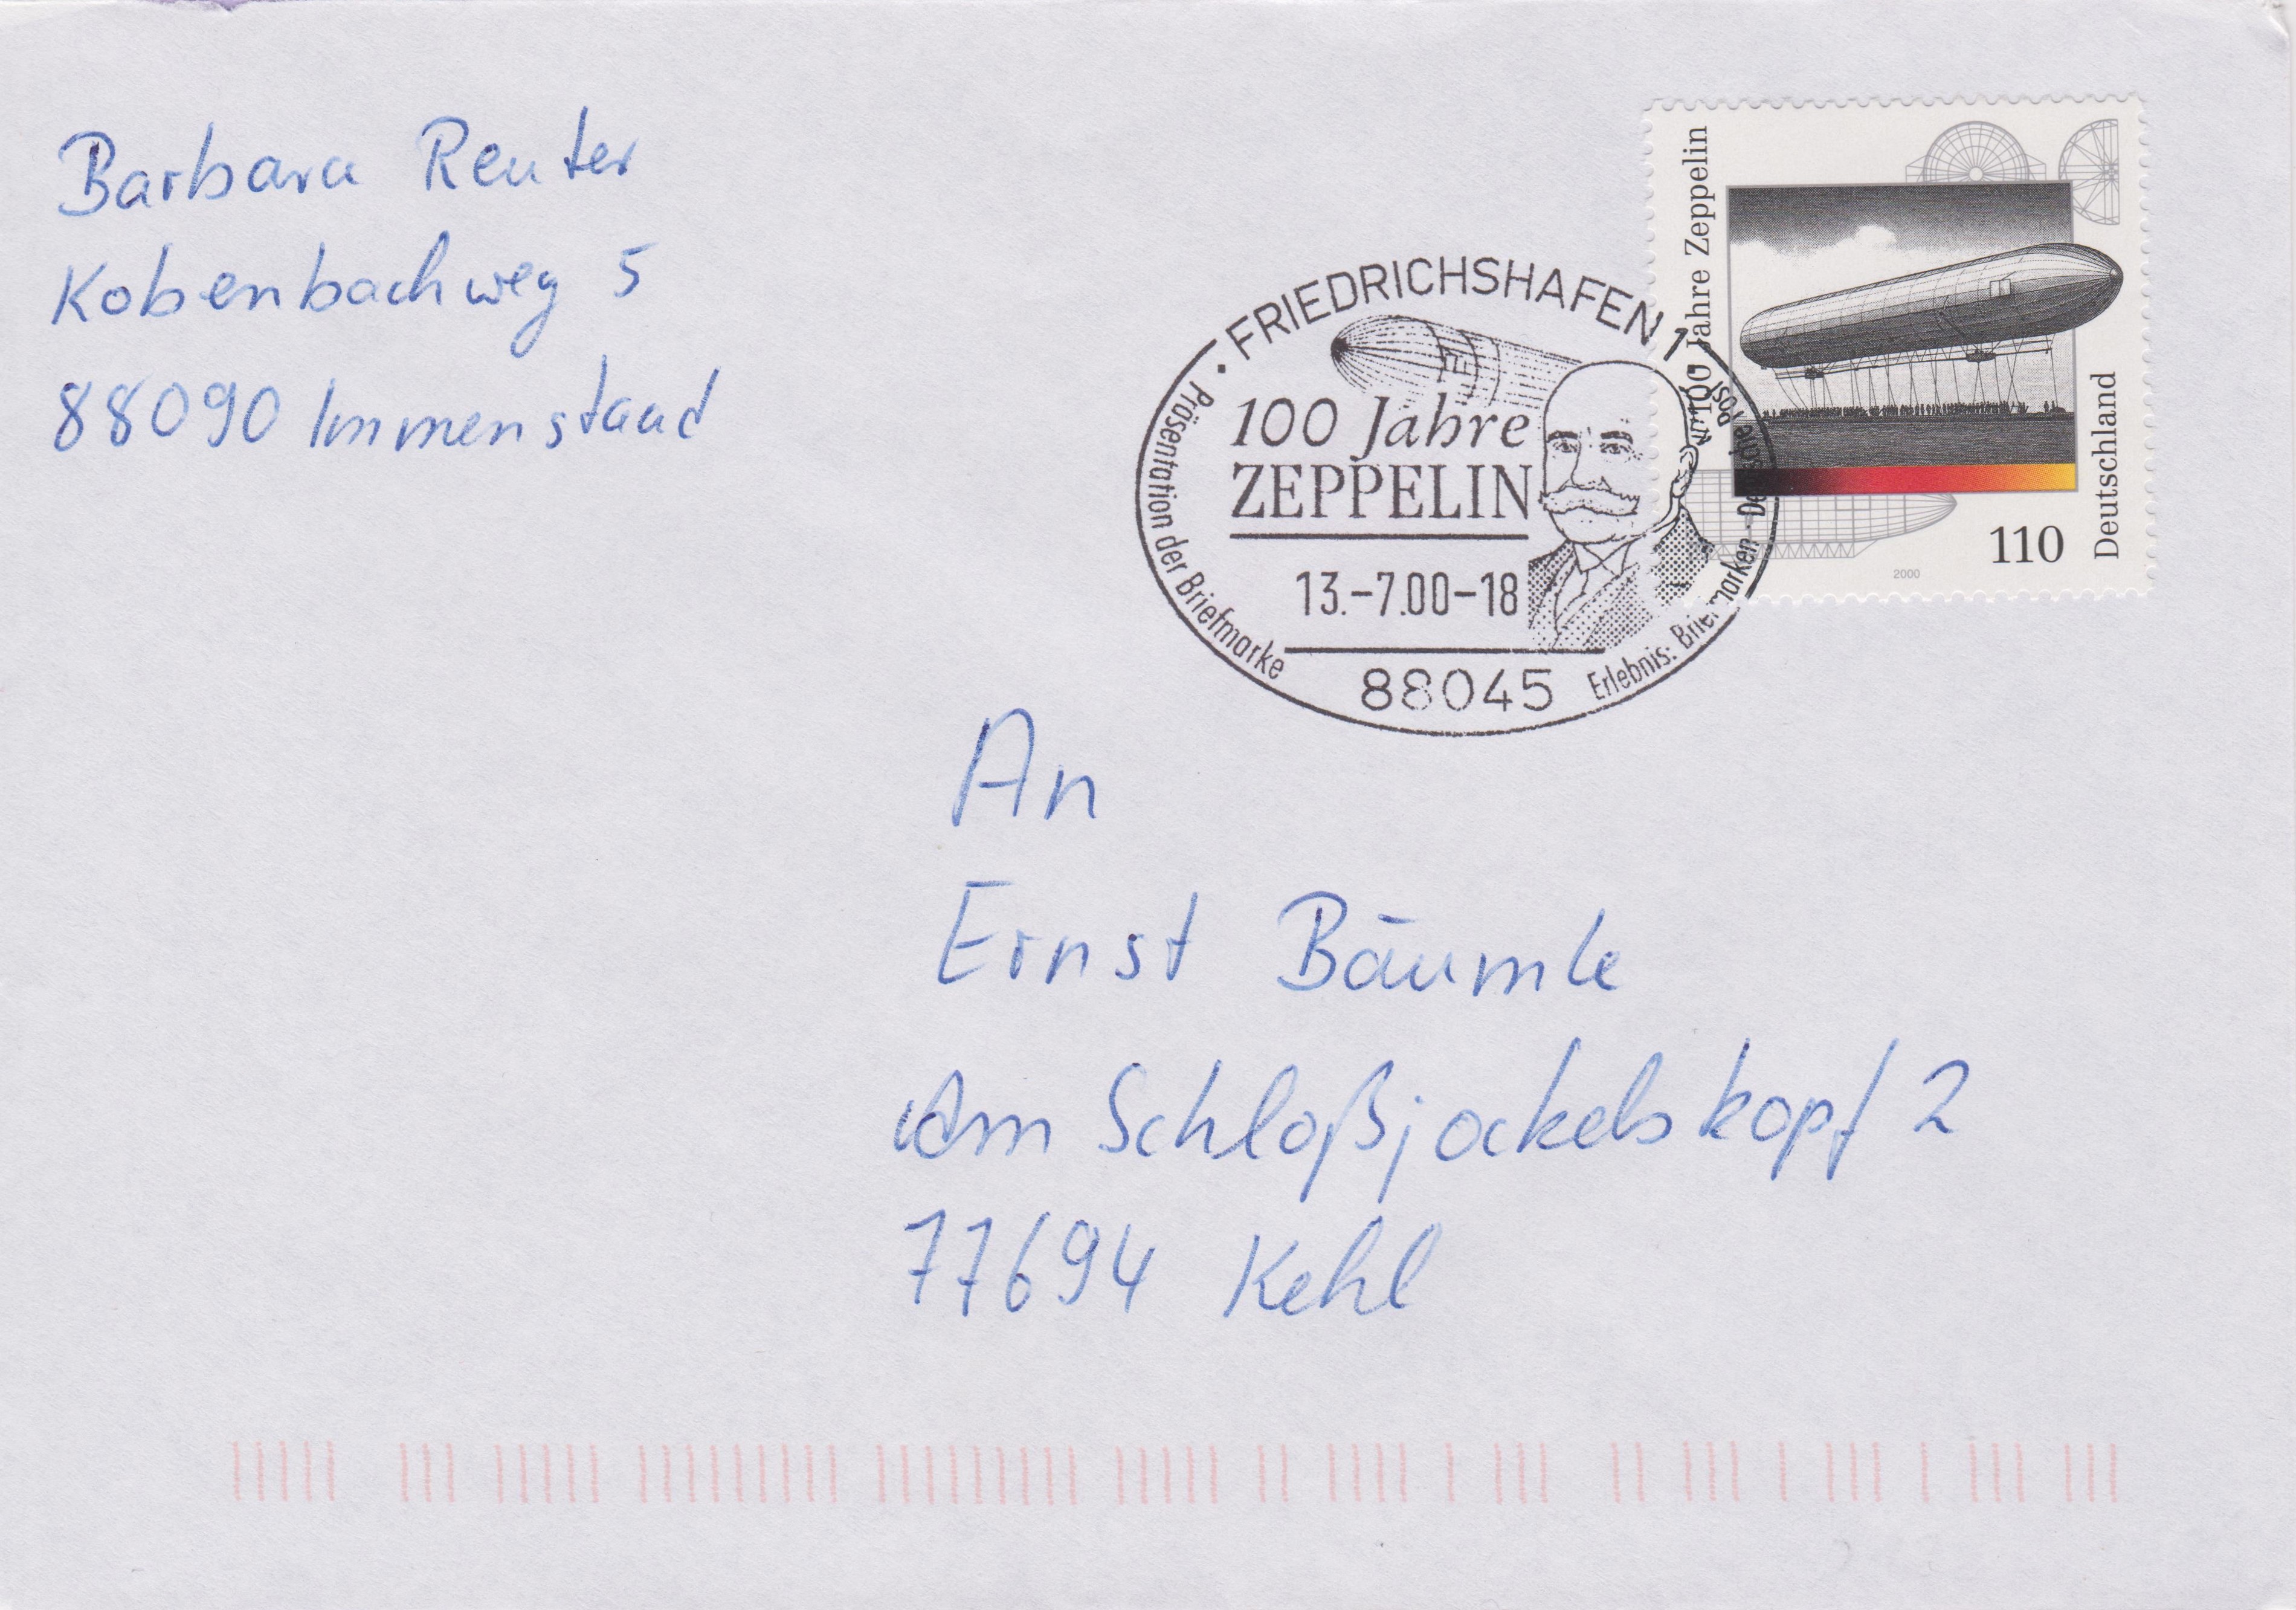 Barbara Reuter
Kobenbachweg 5
88090 Immenstaad
FRIEDRICHSHAFEN 1
100 Jahre
ZEPPELIN
13.-7.00-18
88045
Präsentation der Briefmarke
Erlebnis: Briefmarken - Deutsche Post
100 Jahre Zeppelin
Deutschland
110
2000
An
Ernst Bäumle
Am Schloßjockelskopf 2
77694 Kehl